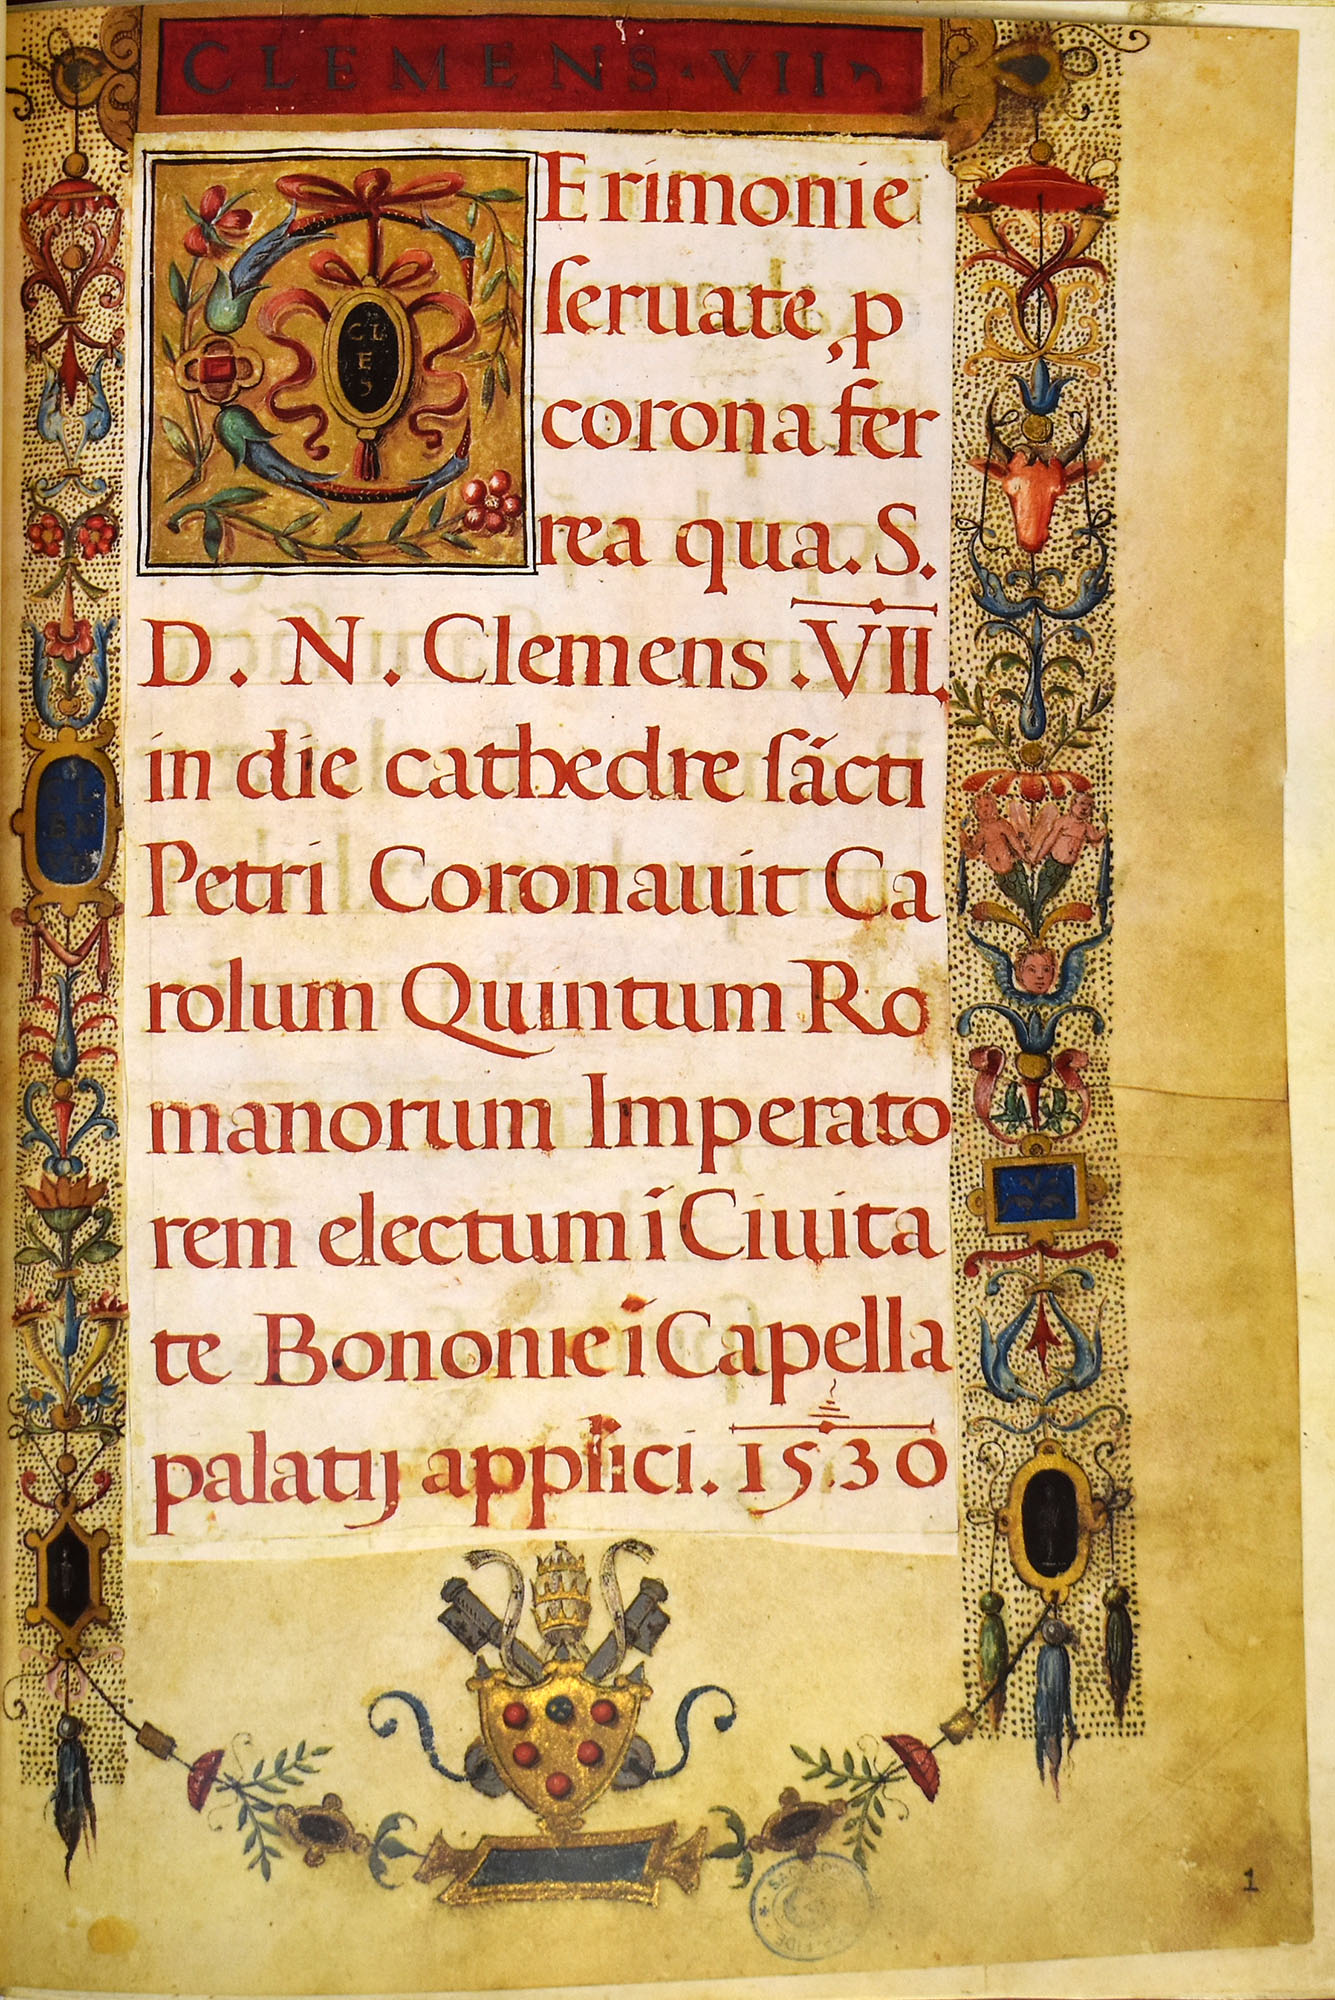 CLEMENS·VII
CErimonie
seruate, p
corona fer
rea qua. S.
D. N. Clemens .VII.
in die cathedre sācti
Petri Coronauit Ca
rolum Quintum Ro
manorum Imperato
rem electum ī Ciuita
te Bononie ī Capella
palatij applici. 1530
CL
E
S
1